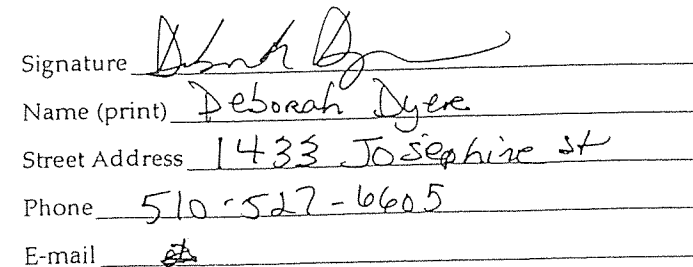 Signature Deborah Dyere
Name (print) Deborah Dyere
Street Address 1433 Josephine St
Phone 510-527-6605
E-mail